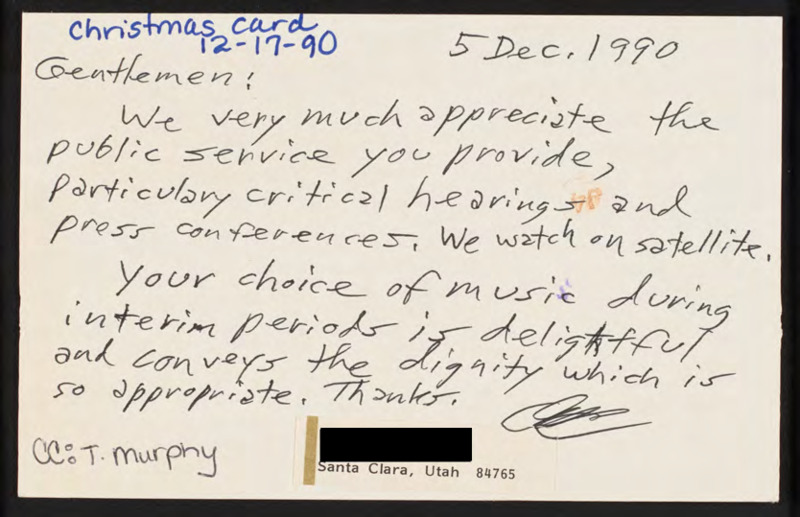 christmas card
12-17-90
5 Dec. 1990
Gentlemen:
We very much appreciate the
public service you provide,
particulary critical hearings and
press conferences. We watch on satellite.
Your choice of music during
interim periods is delightful
and conveys the dignity which is
so appropriate. Thanks.
CC: T. Murphy
Santa Clara, Utah 84765